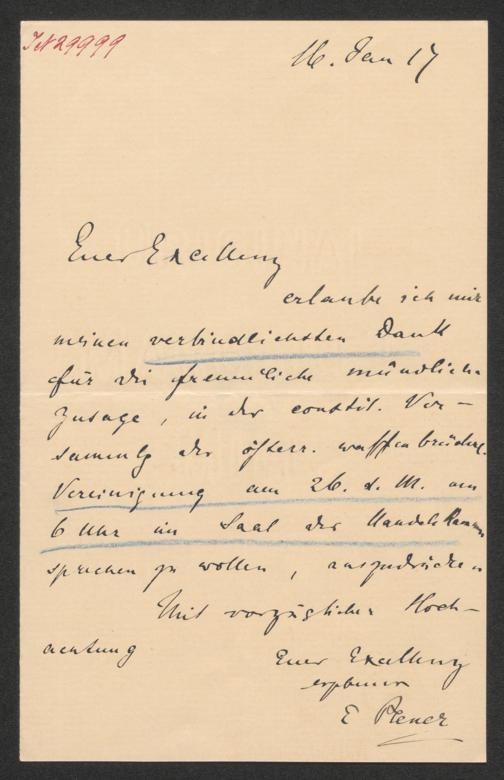 IN 29999
16. Jan 17
Euer Excellenz
erlaube ich mir
meinen verbindlichsten Dank
für die freundliche mündliche
Zusage, in der constit. Ver-
sammlg der österr. waffenbrüderl.
Vereinigung am 26. d. M. um
6 Uhr im Saal der Handelskammer
sprechen zu wollen, auszudrücken
Mit vorzüglicher Hoch-
achtung
Euer Excellenz
ergebener
E Plener